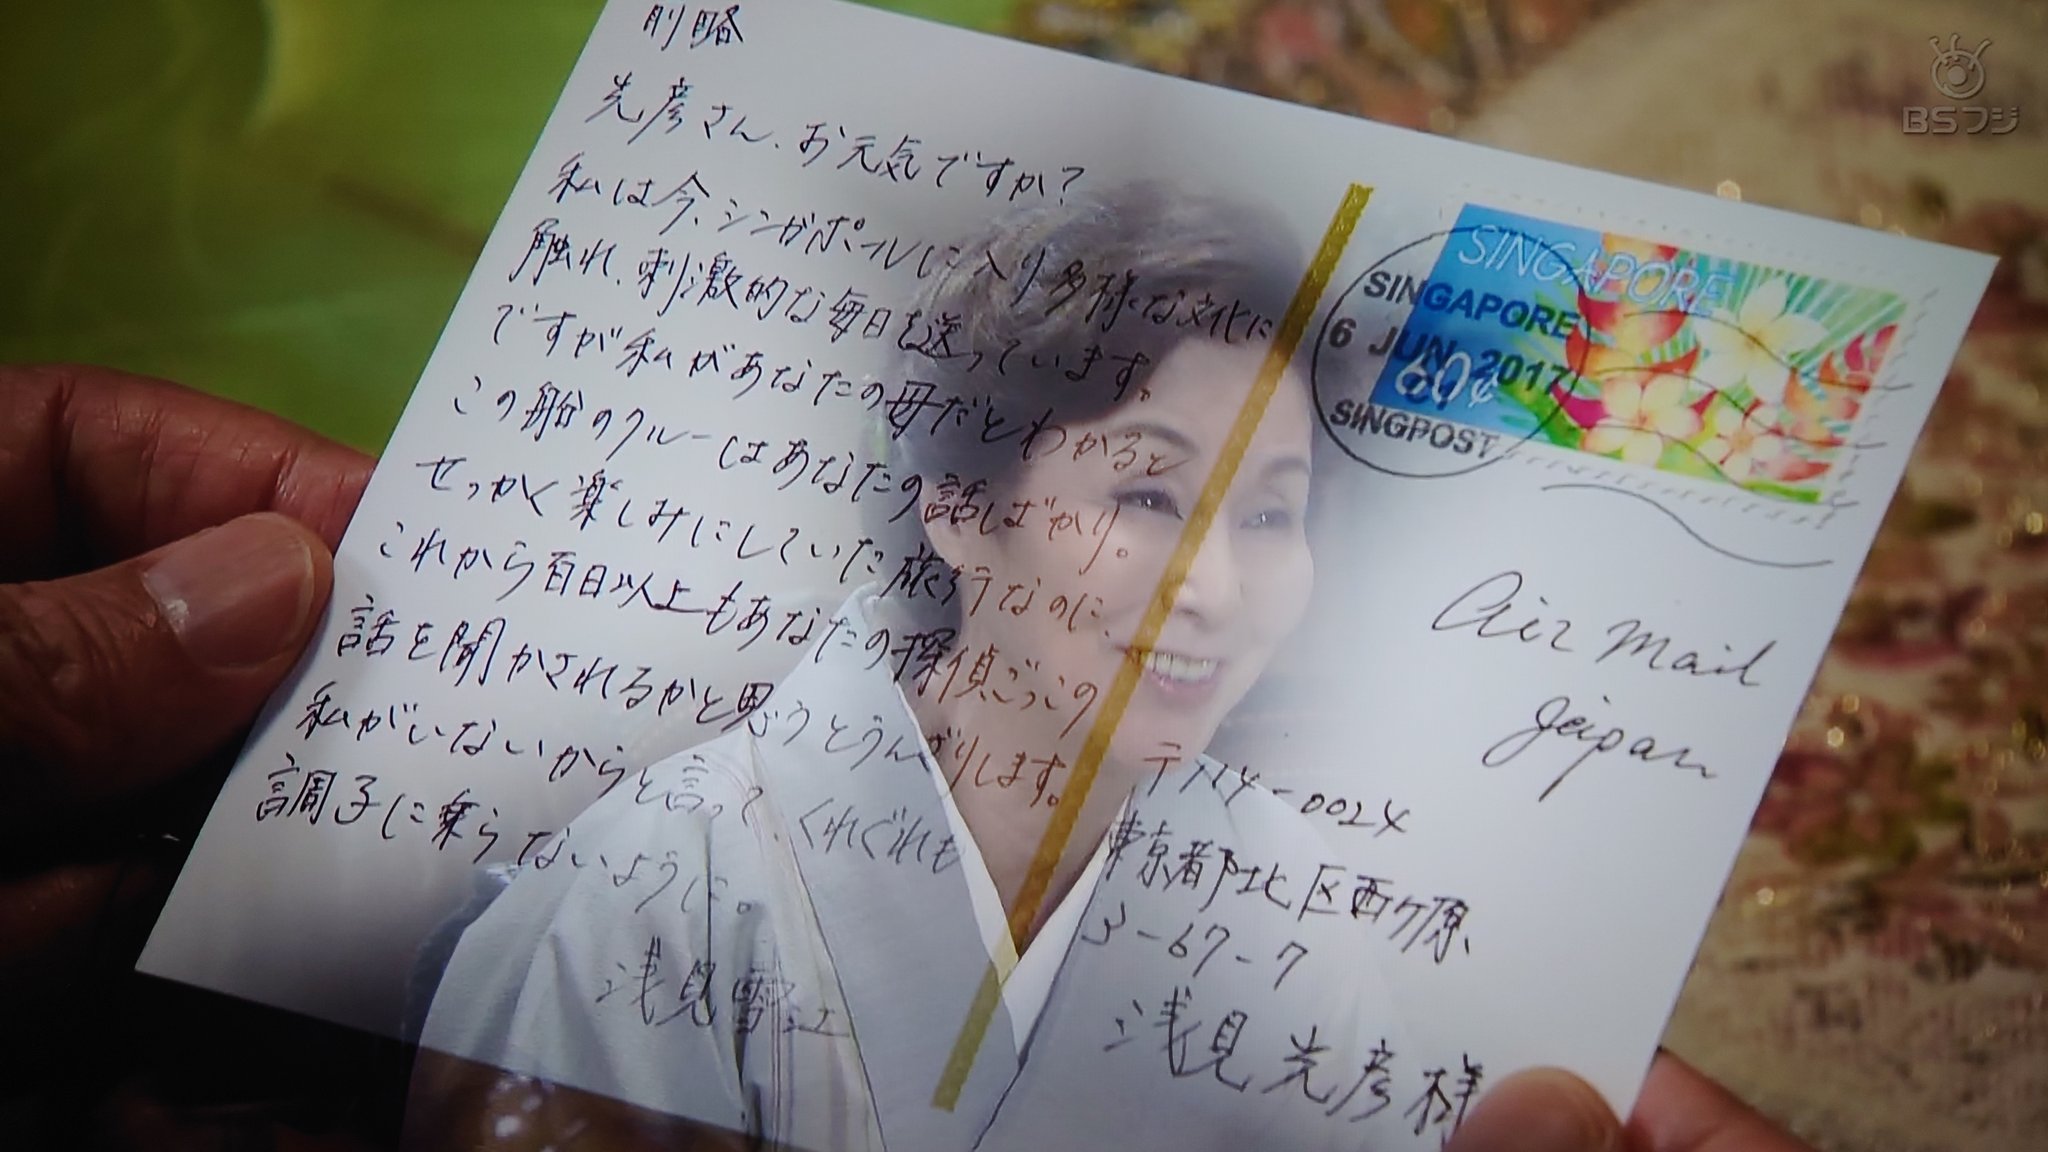 前略
光彦さん、お元気ですか?
私は今、シンガポールに入り多様な文化に
触れ、刺激的な毎日を送っています。
ですが私があなたの母だとわかると
この船のクルーはあなたの話ばかり。
せっかく楽しみにしていた旅行なのに、
これから百日以上もあなたの探偵ごっこの
話を聞かされるかと思うとうんざりします。
私がいないからと言って、くれぐれも
調子に乗らないように。
浅見雪江
SINGAPORE
60¢
SINGAPORE
6 JUN 2017
SINGPOST
Air Mail
Japan
〒114-0024
東京都北区西ケ原
3-67-7
浅見光彦様
BSフジ